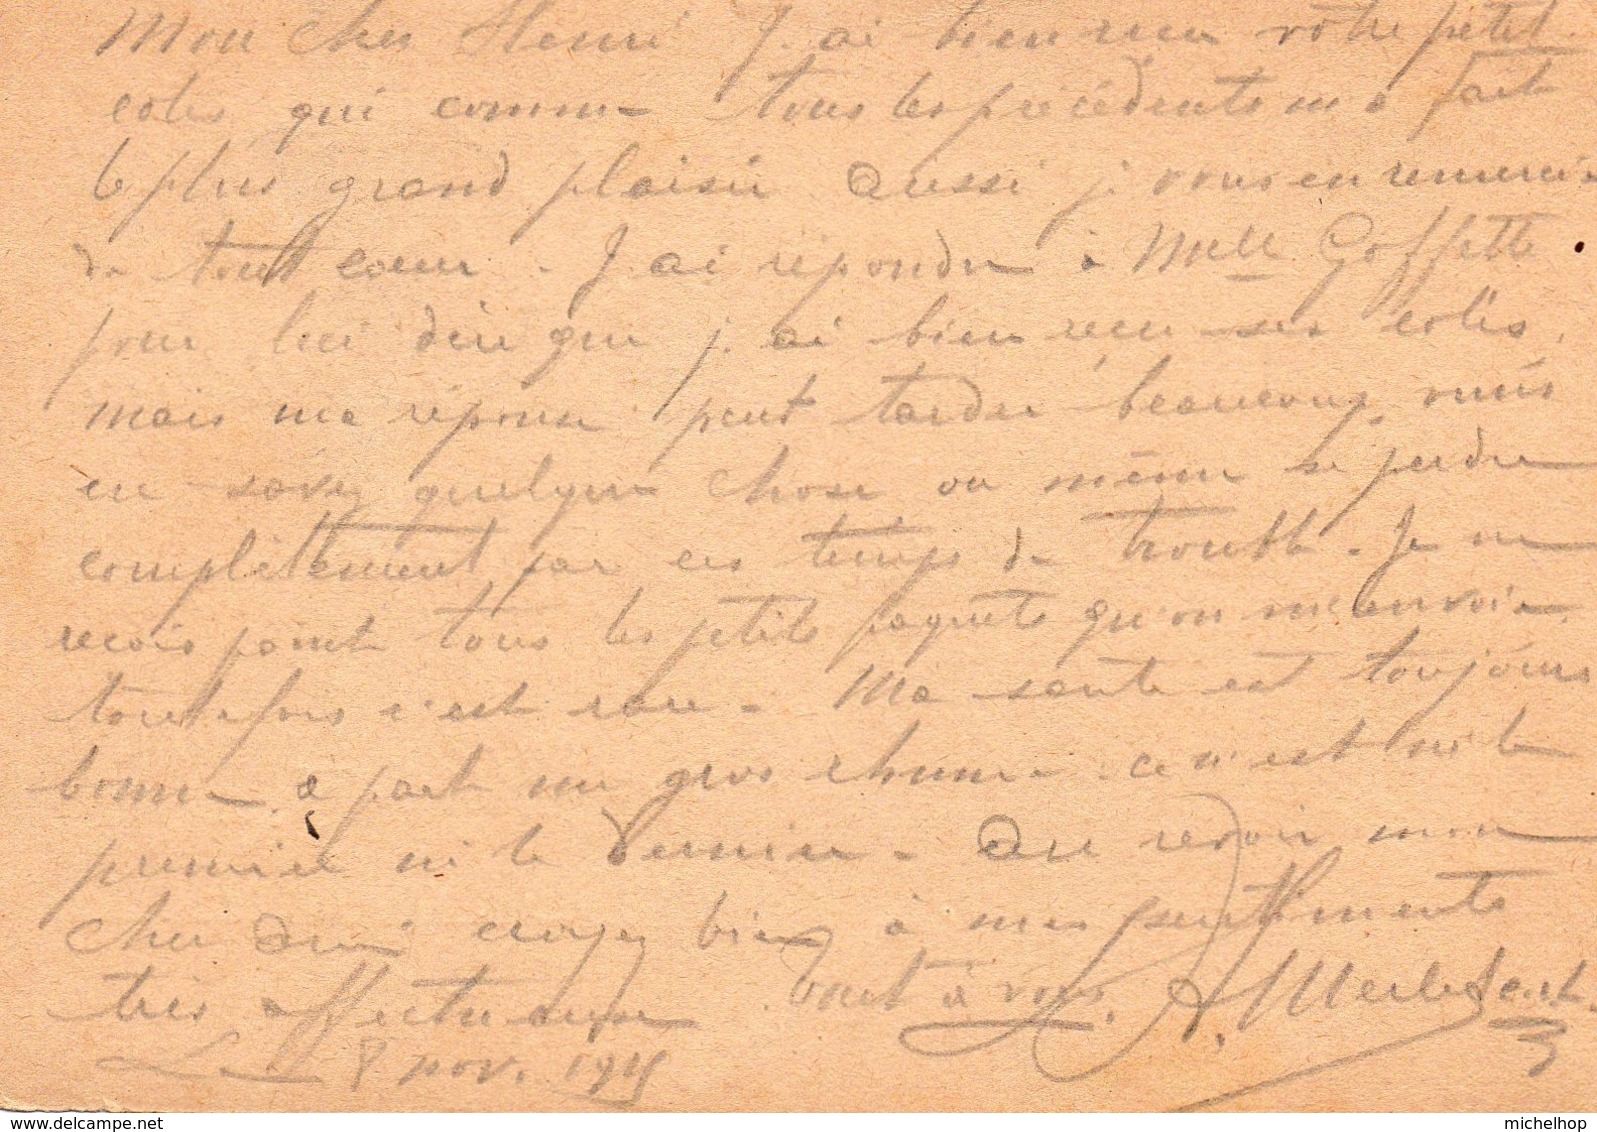 Mon cher Henri J'ai bien reçu votre petit
colis qui comme tous les précédents m'a fait
le plus grand plaisir aussi je vous en remercie
de tout cœur. J'ai répondu à Melle Goffette
pour lui dire que j'ai bien reçu ses colis,
mais ma réponse peut tarder beaucoup, vous
en savez quelque chose ou même se perdre
complètement par ces temps de trouble. Je ne
reçois point tous les petits paquets qu'on m'envoie,
toutefois c'est rare. Ma santé est toujours
bonne, à part un gros rhume ce n'est ni le
premier ni le dernier. Au revoir mon
cher ami croyez bien à mes sentiments
très affectueux. tout à vous. A.
Le 8 nov. 1915
delcampe.net
michelhop